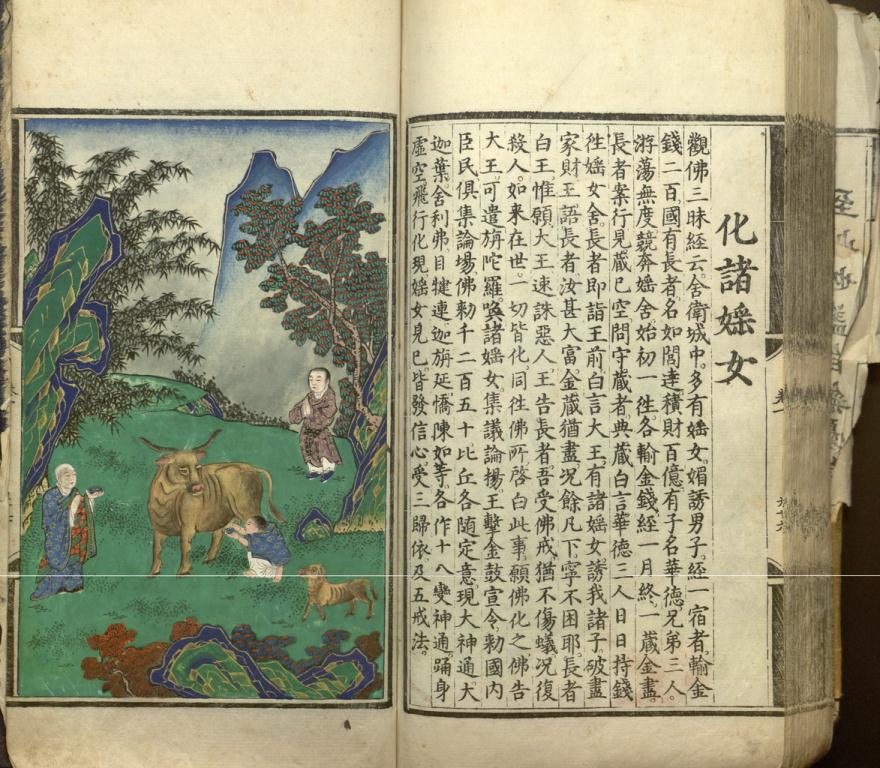 化諸婬女
觀佛三昧經云。舍衛城中。多有婬女媚誘男子。經一宿者。輸金
錢二百。國有長者。名如閭達。積財百億。有子名華德。兄弟三人。
游蕩無度。競奔婬舍。始初一徃。各輸金錢。經一月終。一藏金盡。
長者案行。見藏已空。問守藏者。典藏白言。華德三人。日日持錢
徃婬女舍。長者即詣王前。白言大王。有諸婬女。誘我諸子。破盡
家財。王語長者。汝甚大富。金藏猶盡。况餘凡下。寧不困耶。長者
白王。惟願大王。速誅惡人。王告長者。吾受佛戒。猶不傷蟻。况復
殺人。如来在世。一切皆化。同徃佛所。啓白此事。願佛化之。佛告
大王。可遣旃陀羅。喚諸婬女。集議論場。王擊金鼓。宣令。勅國内
臣民。俱集論場。佛勅千二百五十比丘。各随定意。現大神通。大
迦葉。舍利弗。目犍連。迦旃延。憍陳如等。各作十八變。神通。踊身
虛空。飛行化現。婬女見已。皆發信心。受三歸依。及五戒法。
卷一